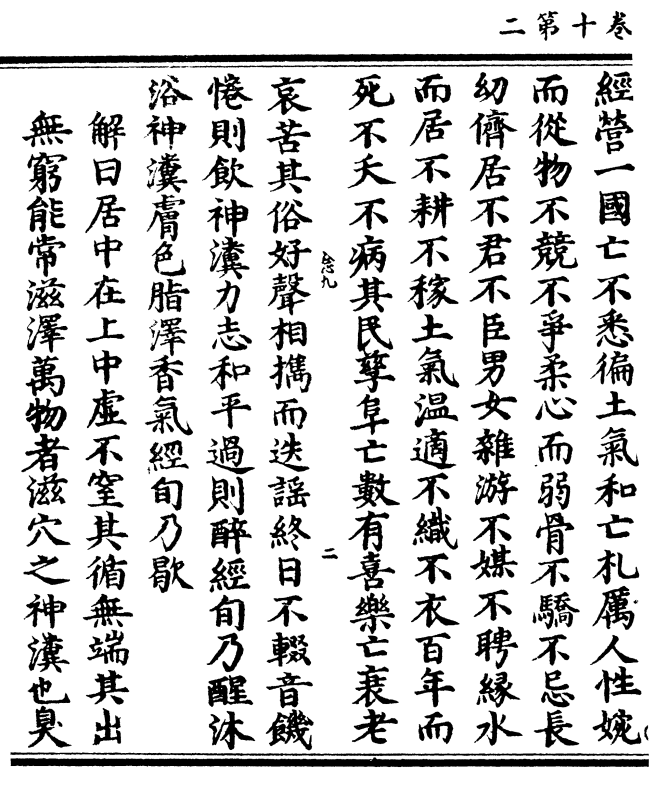 卷十第二
經營一國亡不悉徧土氣和亡札厲人性婉
而從物不競不爭柔心而弱骨不驕不忌長
幼儕居不君不臣男女雜游不媒不聘緣水
而居不耕不稼土氣温適不織不衣百年而
死不夭不病其民孳阜亡數有喜樂亡衰老
哀苦其俗好聲相擕而迭謡終日不輟音饑
惓則飲神瀵力志和平過則醉經旬乃醒沐
浴神瀵膚色脂澤香氣經旬乃歇
解曰居中在上中虛不窒其循無端其出
無窮能常滋澤萬物者滋穴之神瀵也臭
二